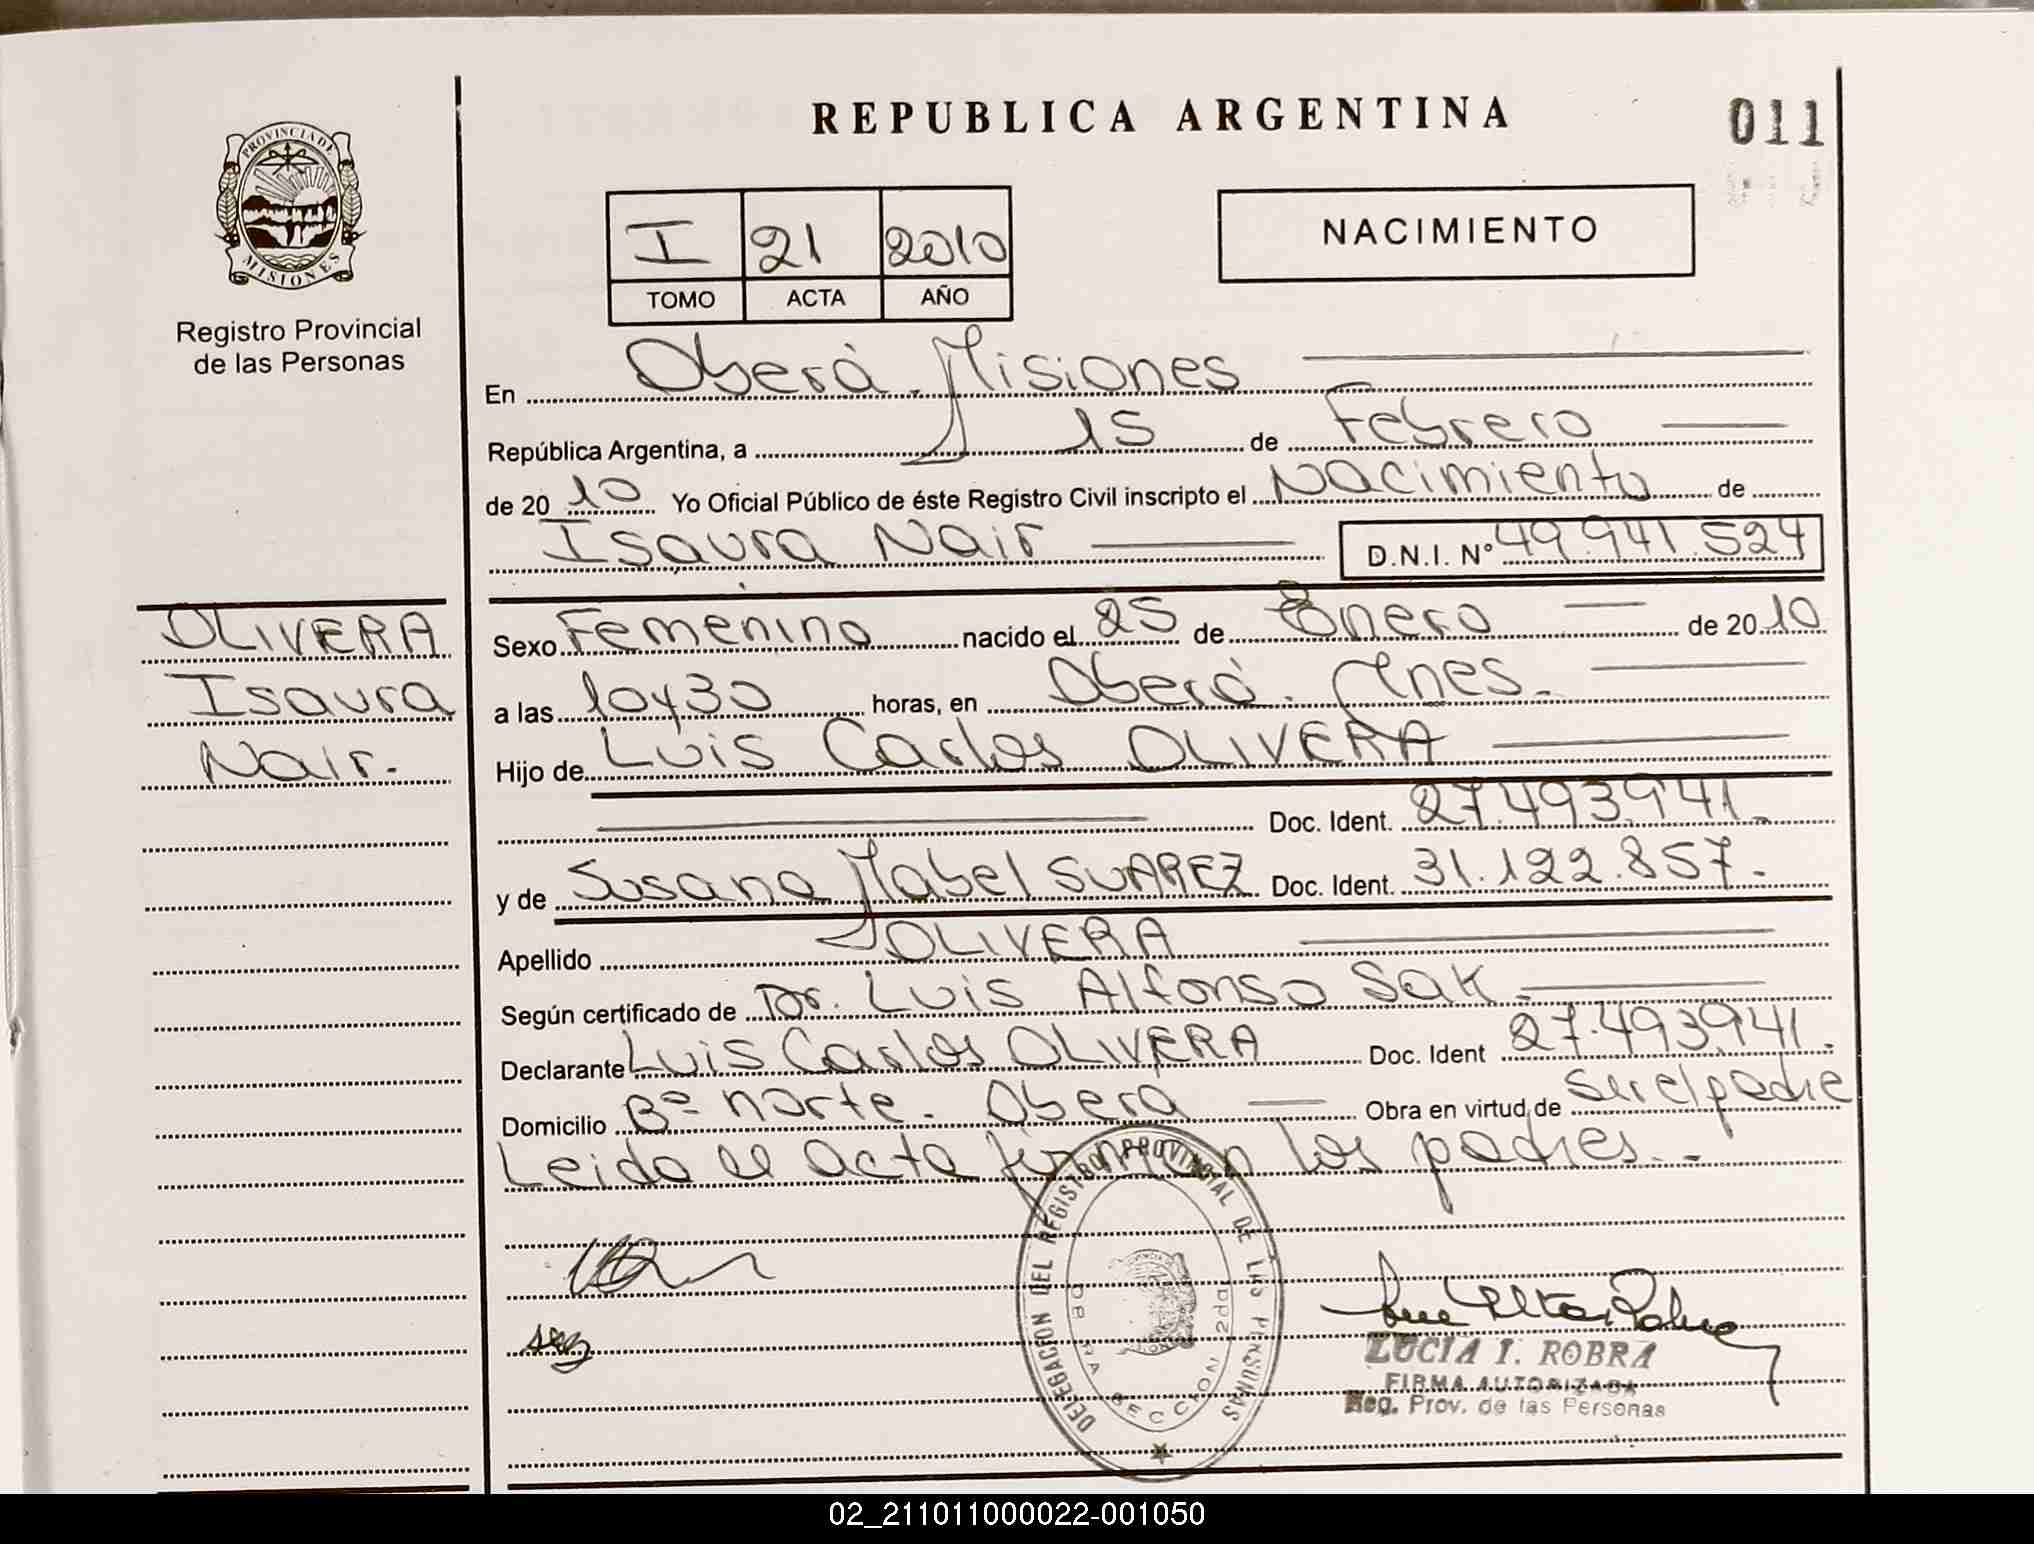 REPUBLICA ARGENTINA
011
PROVINCIA DE
MISIONES
Registro Provincial
de las Personas
I 21 2010
TOMO ACTA AÑO
NACIMIENTO
En Oberá. Misiones
República Argentina, a 15 de Febrero
de 20 10 Yo Oficial Público de éste Registro Civil inscripto el Nacimiento de
Isaura Nair D.N.I. Nº 49.941.524
OLIVERA
Isaura
Nair.
Sexo Femenino nacido el 25 de Enero de 20 10
a las 10y30 horas, en Oberá. Mnes.
Hijo de Luis Carlos OLIVERA
Doc. Ident. 27.493.941.
y de Susana Mabel SUAREZ Doc. Ident. 31.122.857.
Apellido OLIVERA
Según certificado de Dr. Luis Alfonso Sak.
Declarante Luis Carlos OLIVERA Doc. Ident 27.493.941.
Domicilio Bº norte. Oberá Obra en virtud de ser el padre
Leida el acta firman los padres.
DELEGACION DEL REGISTRO PROVINCIAL DE LAS PERSONAS
SECCION 2da
LUCIA I. ROBRA
FIRMA AUTORIZADA
Reg. Prov. de las Personas
02_211011000022-001050